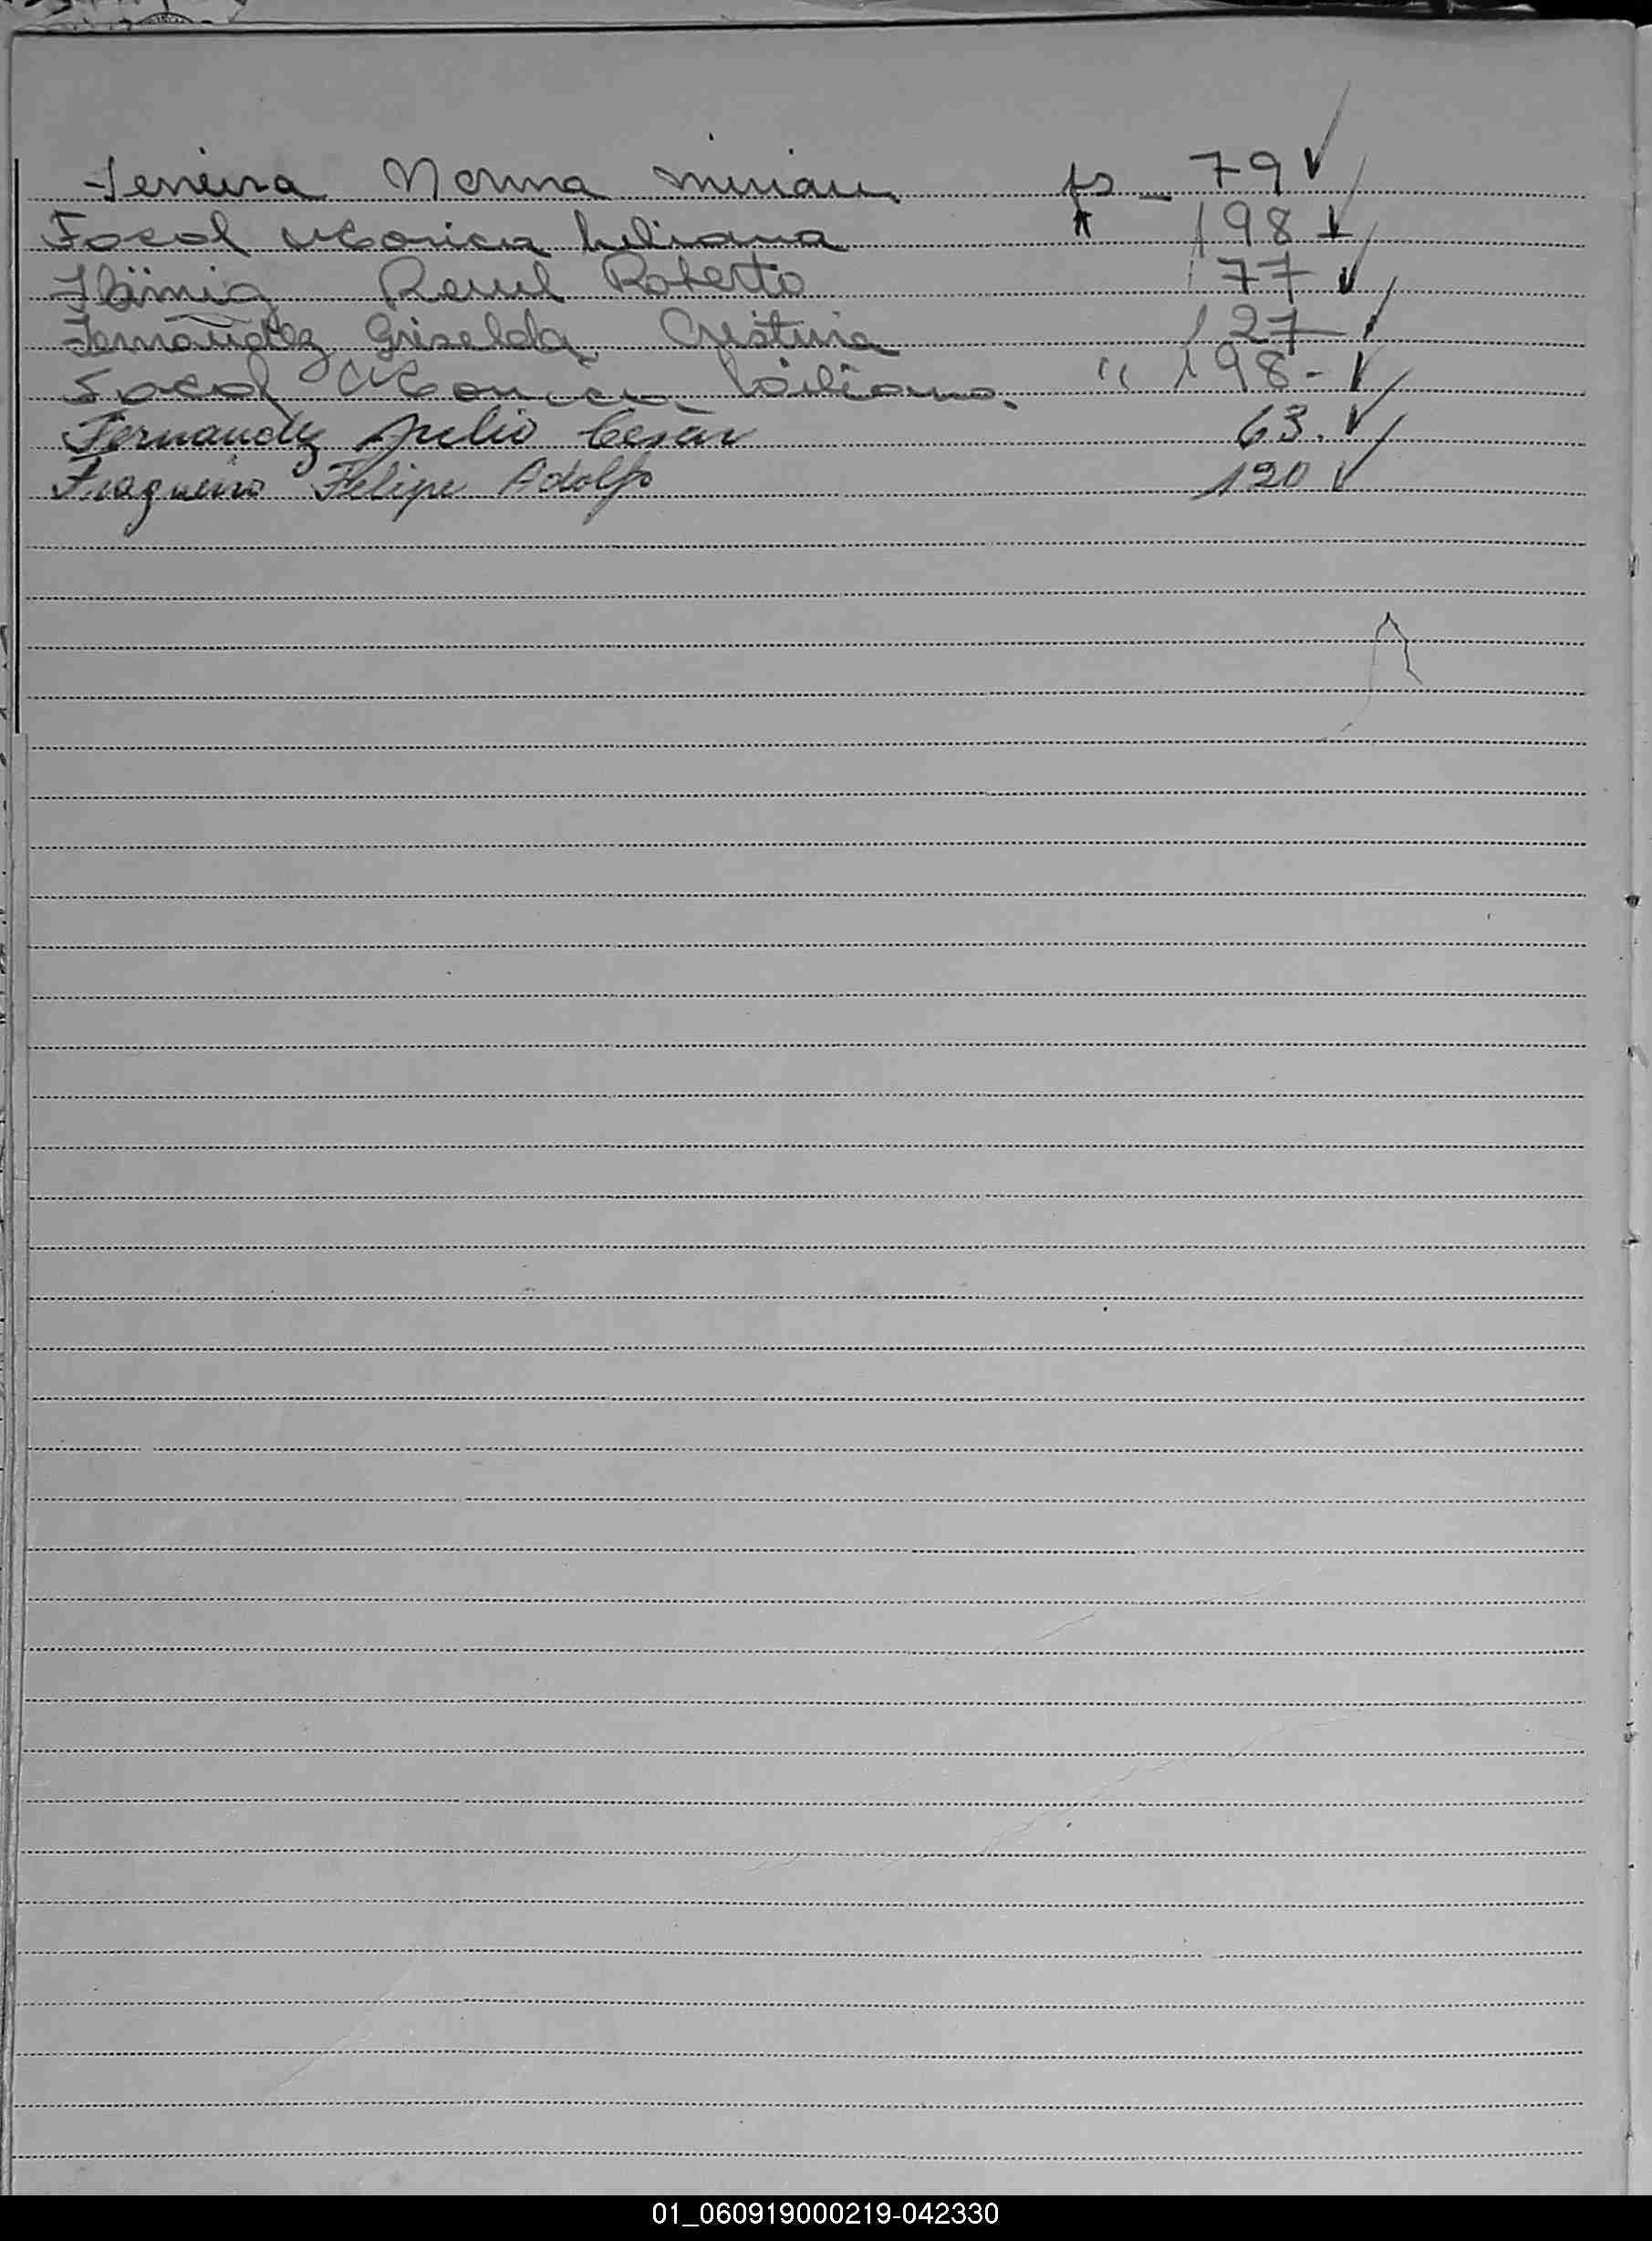 Ferreira Norma Miriam fs - 79
Focal Monica Liliana " 198
Flämig Raul Roberto 177
Fernandez Griselda Cristina 127
Focal Monica Liliana. " 198-
Fernandez Julio Cesar 63.
Fragueiro Felipe Adolfo 120
01_060919000219-042330